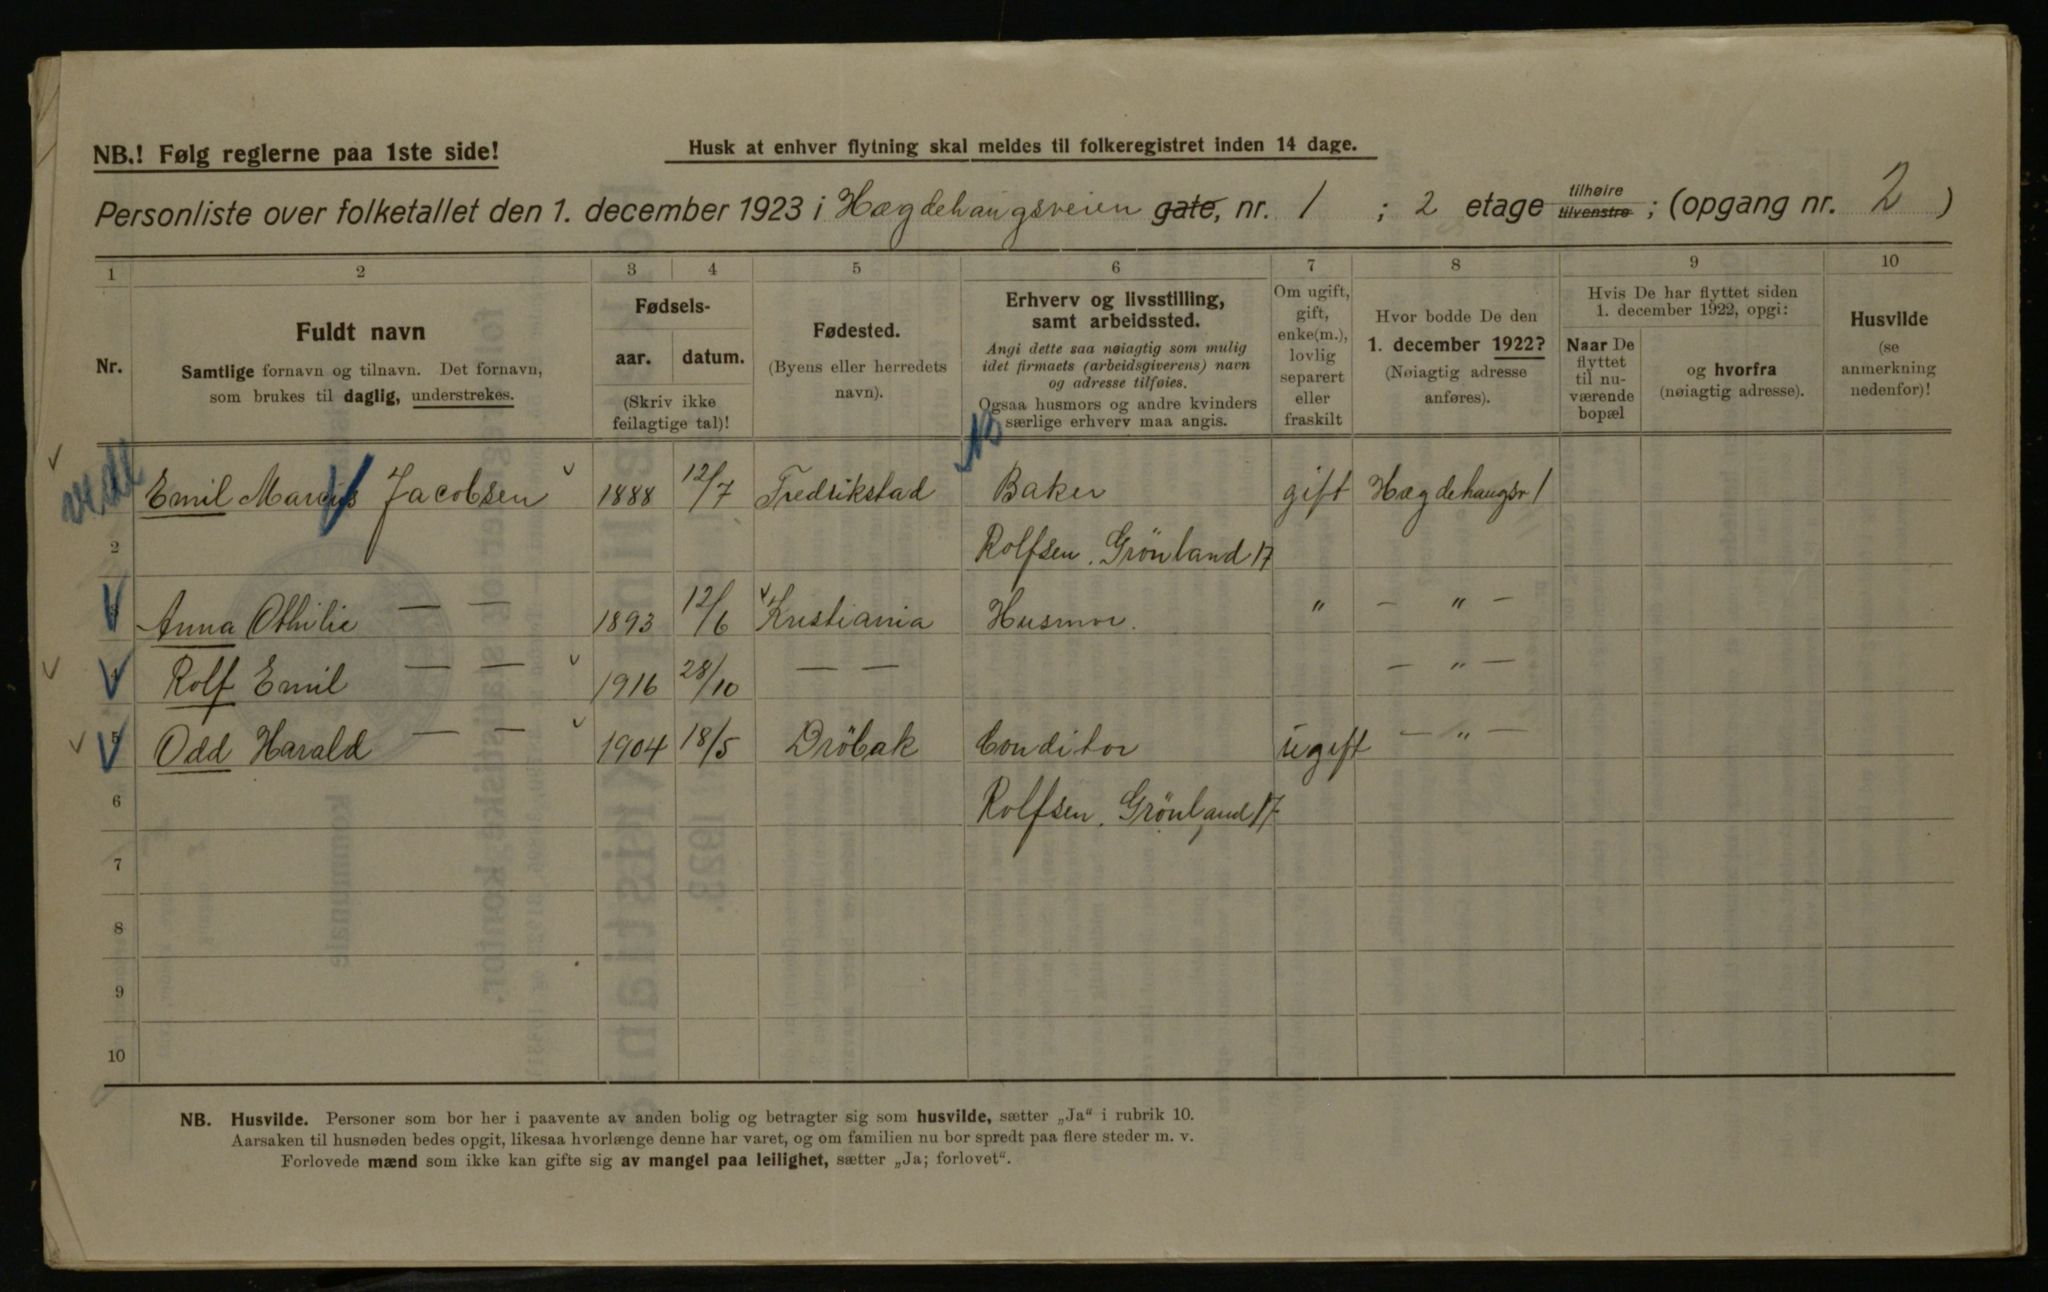 NB.! Følg reglerne paa 1ste side!
Husk at enhver flytning skal meldes til folkeregistret inden 14 dage.
Personliste over folketallet den 1. december 1923 i Hægdehaugsveien gate, nr. 1 ; 2 etage tilhøire tilvenstre ; (opgang nr. 2 )
1 2 3 4 5 6 7 8 9 10
Nr.
Fuldt navn
Samtlige fornavn og tilnavn. Det fornavn,
som brukes til daglig, understrekes.
Fødsels-
aar. datum.
(Skriv ikke
feilagtige tal)!
Fødested.
(Byens eller herredets
navn).
Erhverv og livsstilling,
samt arbeidssted.
Angi dette saa nøiagtig som mulig
idet firmaets (arbeidsgiverens) navn
og adresse tilføies.
Ogsaa husmors og andre kvinders
særlige erhverv maa angis.
Om ugift,
gift,
enke(m.),
lovlig
separert
eller
fraskilt
Hvor bodde De den
1. december 1922?
(Nøiagtig adresse
anføres).
Hvis De har flyttet siden
1. december 1922, opgi:
Naar De
flyttet
til nu-
værende
bopæl
og hvorfra
(nøiagtig adresse).
Husvilde
(se
anmerkning
nedenfor)!
Emil Marcus Jacobsen 1888 12/7 Fredrikstad Baker gift Hægdehaugsv 1
2 Rolfsen. Grönland 17
3 Anna Othilie — — 1893 12/6 Kristiania Husmor. " — " —
4 Rolf Emil — — 1916 28/10 — — — " —
5 Odd Harald — — 1904 18/5 Dröbak Conditor ugift — " —
6 Rolfsen. Grönland 17
7
8
9
10
NB. Husvilde. Personer som bor her i paavente av anden bolig og betragter sig som husvilde, sætter „Ja“ i rubrik 10.
Aarsaken til husnøden bedes opgit, likesaa hvorlænge denne har varet, og om familien nu bor spredt paa flere steder m. v.
Forlovede mænd som ikke kan gifte sig av mangel paa leilighet, sætter „Ja; forlovet“.